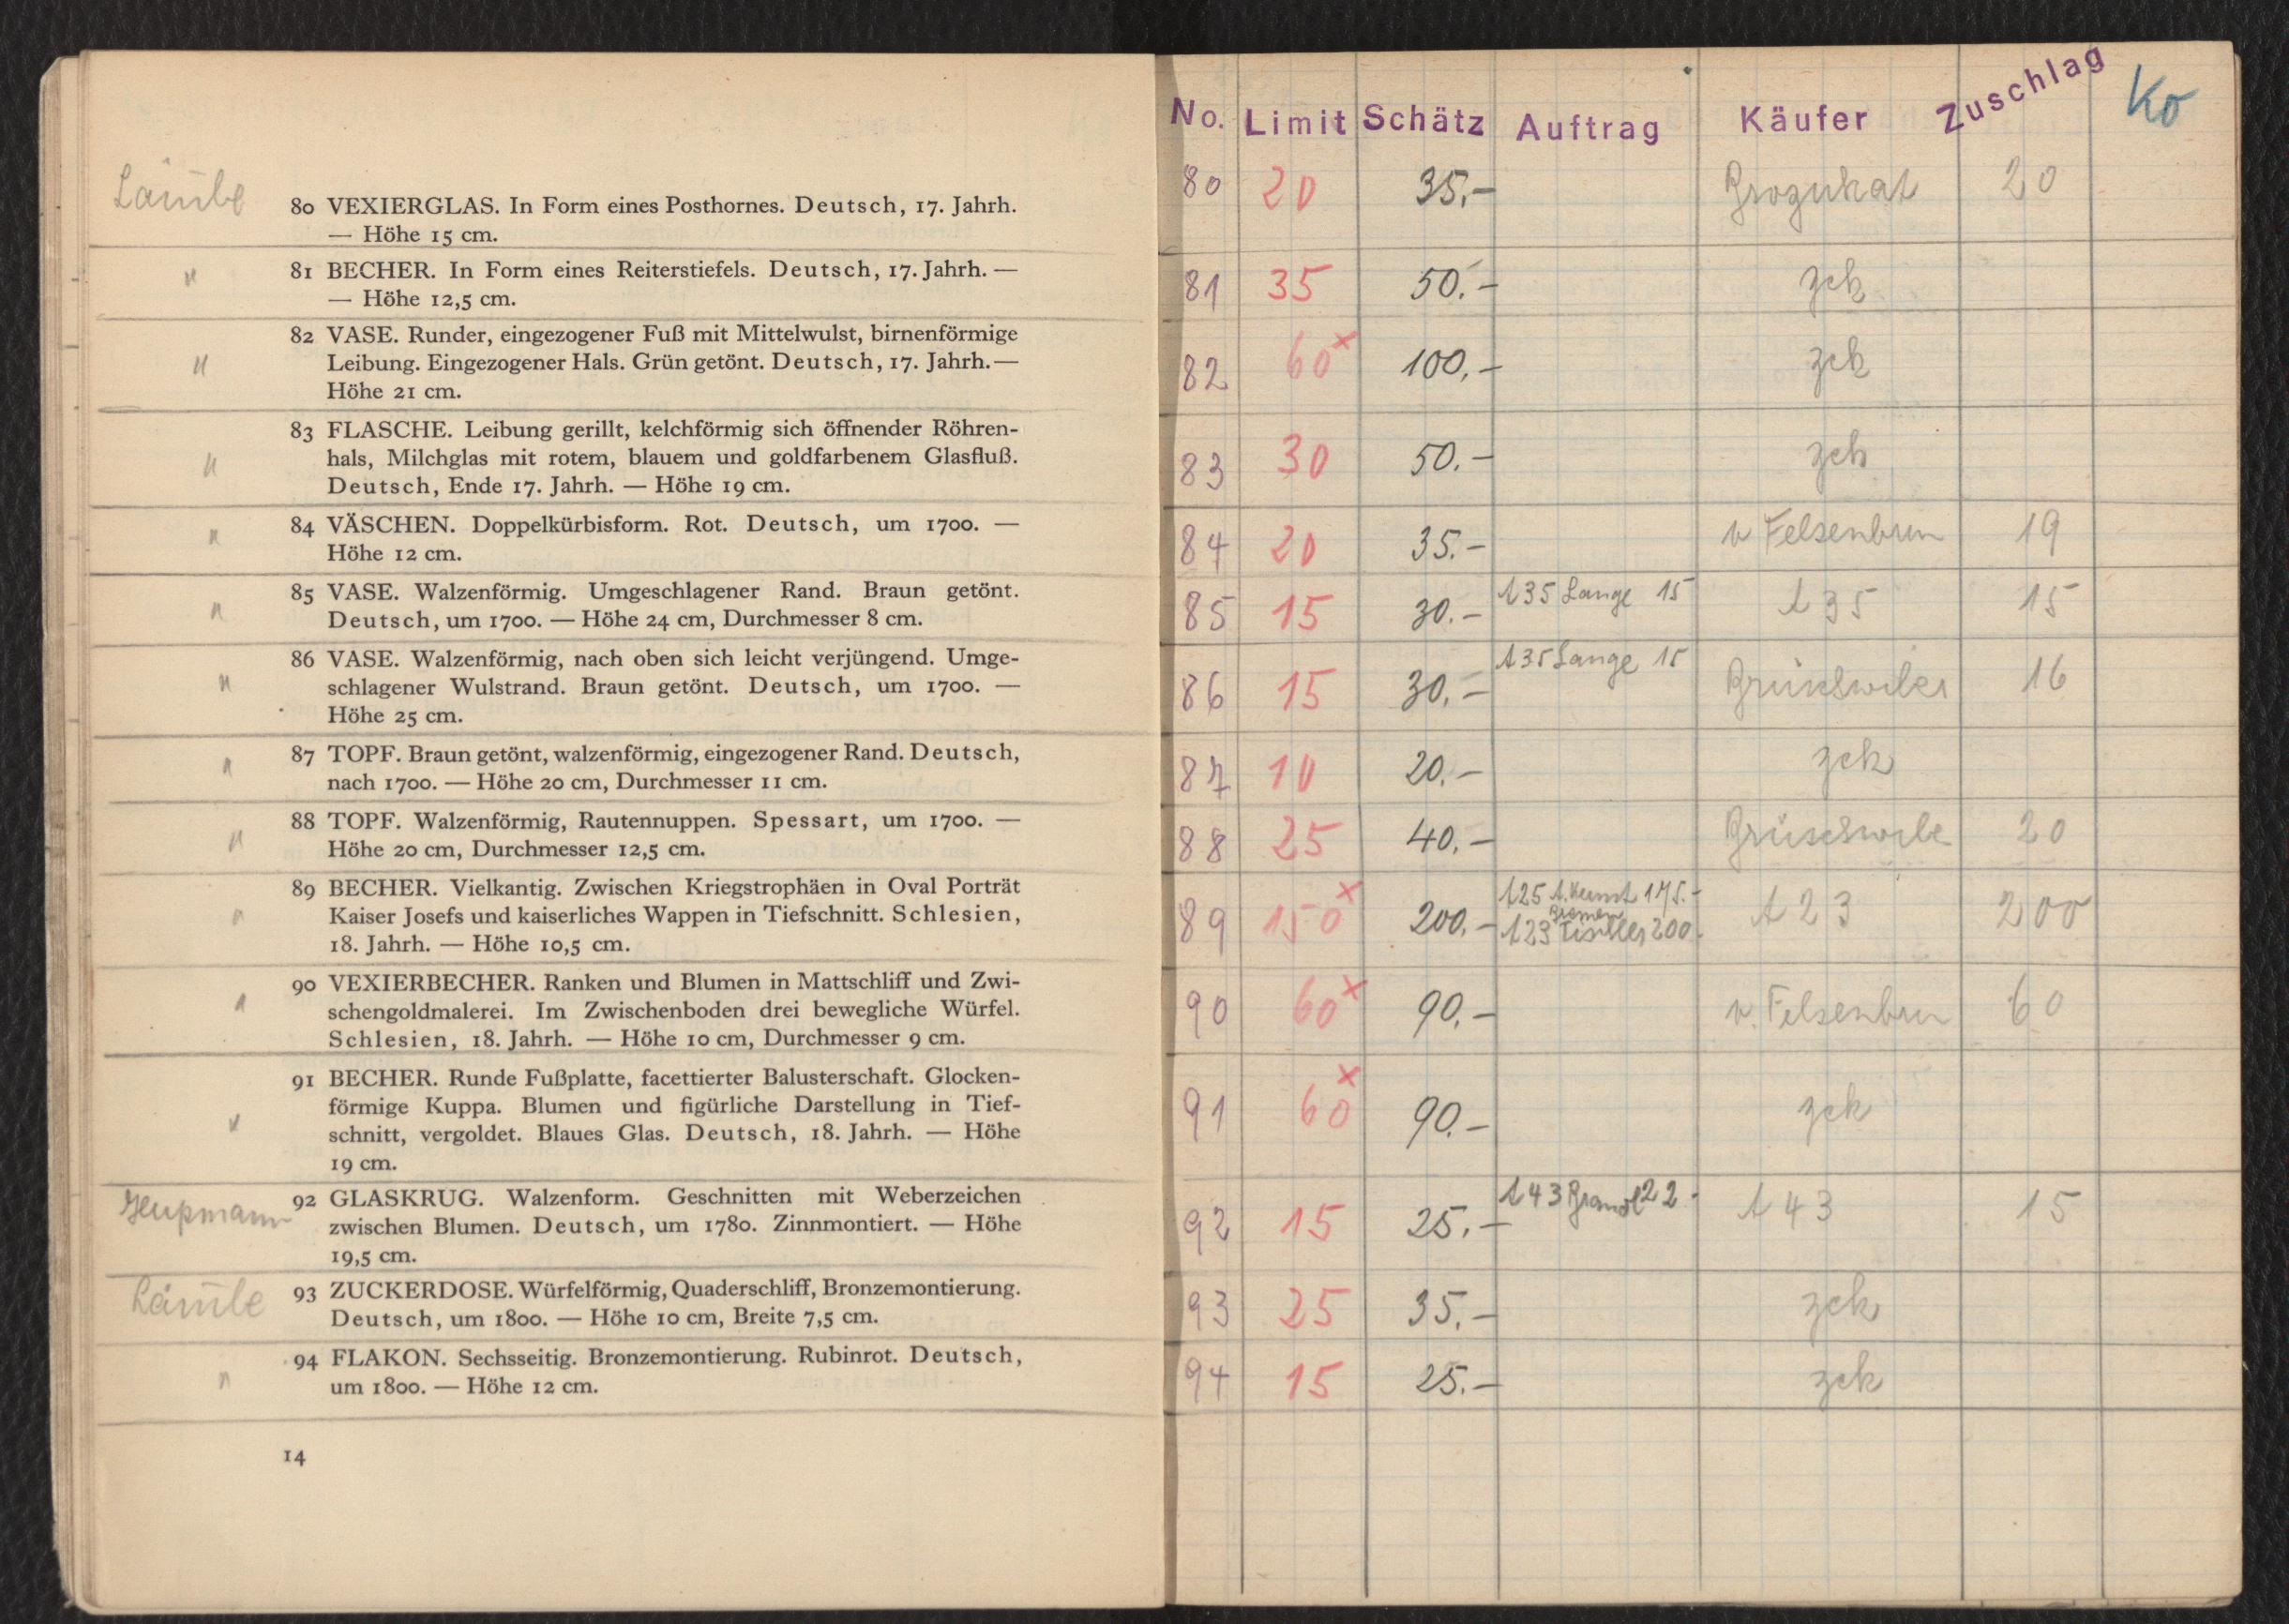 80 VEXIERGLAS. In Form eines Posthornes. Deutsch, 17. Jahrh.
— Höhe 15 cm.
"
81 BECHER. In Form eines Reiterstiefels. Deutsch, 17. Jahrh. —
— Höhe 12,5 cm.
"
82 VASE. Runder, eingezogener Fuß mit Mittelwulst, birnenförmige
Leibung. Eingezogener Hals. Grün getönt. Deutsch, 17. Jahrh. —
Höhe 21 cm.
"
83 FLASCHE. Leibung gerillt, kelchförmig sich öffnender Röhren-
hals, Milchglas mit rotem, blauem und goldfarbenem Glasfluß.
Deutsch, Ende 17. Jahrh. — Höhe 19 cm.
"
84 VÄSCHEN. Doppelkürbisform. Rot. Deutsch, um 1700. —
Höhe 12 cm.
"
85 VASE. Walzenförmig. Umgeschlagener Rand. Braun getönt.
Deutsch, um 1700. — Höhe 24 cm, Durchmesser 8 cm.
"
86 VASE. Walzenförmig, nach oben sich leicht verjüngend. Umge-
schlagener Wulstrand. Braun getönt. Deutsch, um 1700. —
Höhe 25 cm.
"
87 TOPF. Braun getönt, walzenförmig, eingezogener Rand. Deutsch,
nach 1700. — Höhe 20 cm, Durchmesser 11 cm.
"
88 TOPF. Walzenförmig, Rautennuppen. Spessart, um 1700. —
Höhe 20 cm, Durchmesser 12,5 cm.
"
89 BECHER. Vielkantig. Zwischen Kriegstrophäen in Oval Porträt
Kaiser Josefs und kaiserliches Wappen in Tiefschnitt. Schlesien,
18. Jahrh. — Höhe 10,5 cm.
"
90 VEXIERBECHER. Ranken und Blumen in Mattschliff und Zwi-
schengoldmalerei. Im Zwischenboden drei bewegliche Würfel.
Schlesien, 18. Jahrh. — Höhe 10 cm, Durchmesser 9 cm.
"
91 BECHER. Runde Fußplatte, facettierter Balusterschaft. Glocken-
förmige Kuppa. Blumen und figürliche Darstellung in Tief-
schnitt, vergoldet. Blaues Glas. Deutsch, 18. Jahrh. — Höhe
19 cm.
92 GLASKRUG. Walzenform. Geschnitten mit Weberzeichen
zwischen Blumen. Deutsch, um 1780. Zinnmontiert. — Höhe
19,5 cm.
93 ZUCKERDOSE. Würfelförmig, Quaderschliff, Bronzemontierung.
Deutsch, um 1800. — Höhe 10 cm, Breite 7,5 cm.
"
94 FLAKON. Sechsseitig. Bronzemontierung. Rubinrot. Deutsch,
um 1800. — Höhe 12 cm.
14
No. Limit Schätz Auftrag Käufer Zuschlag Ko
80 20 35.- 20
81 35 50.- zck
82 60x 100.- zck
83 30 50.- zck
84 20 35.- v Felsenbrun 19
85 15 30.- A35 Lange 15 A 35 15
86 15 30.- A35 Lange 15 16
87 10 20.- zck
88 25 40.- 20
89 150x 200.- A25 175.- A 23 200
Bremen
A23 200.
90 60x 90.- v. Felsenbrun 60
91 60x 90.- zck
92 15 25.- A43 22.- A 43 15
93 25 35.- zck
94 15 25.- zck